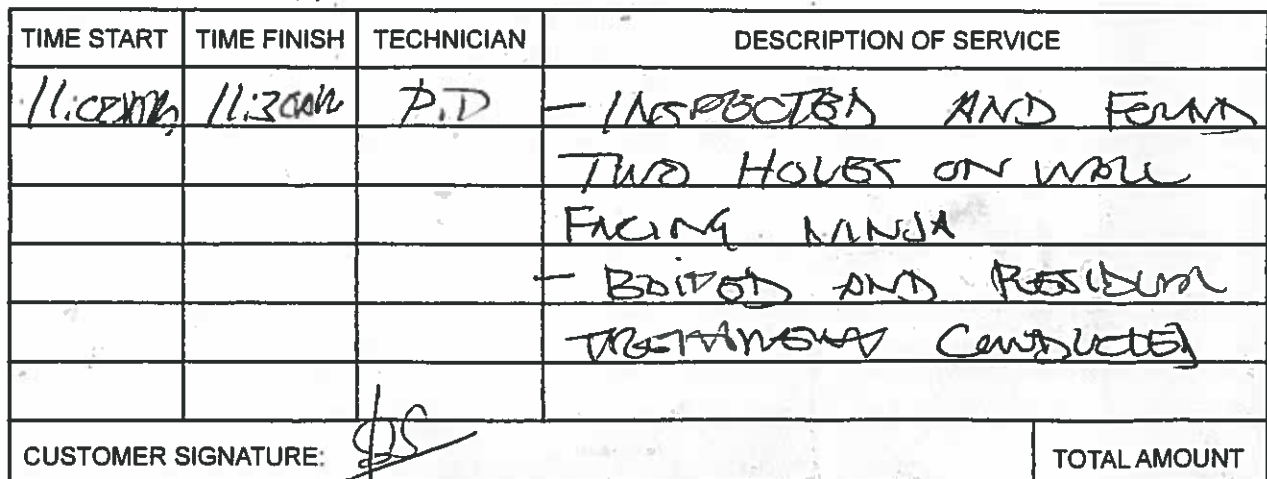 TIME START TIME FINISH TECHNICIAN DESCRIPTION OF SERVICE
11:30am P.D - INSPECTED AND FOUND
TWO HOLES ON WALL
FACING NINJA
- BAITED AND RESIDUAL
TREATMENT CONDUCTED
CUSTOMER SIGNATURE: TOTAL AMOUNT